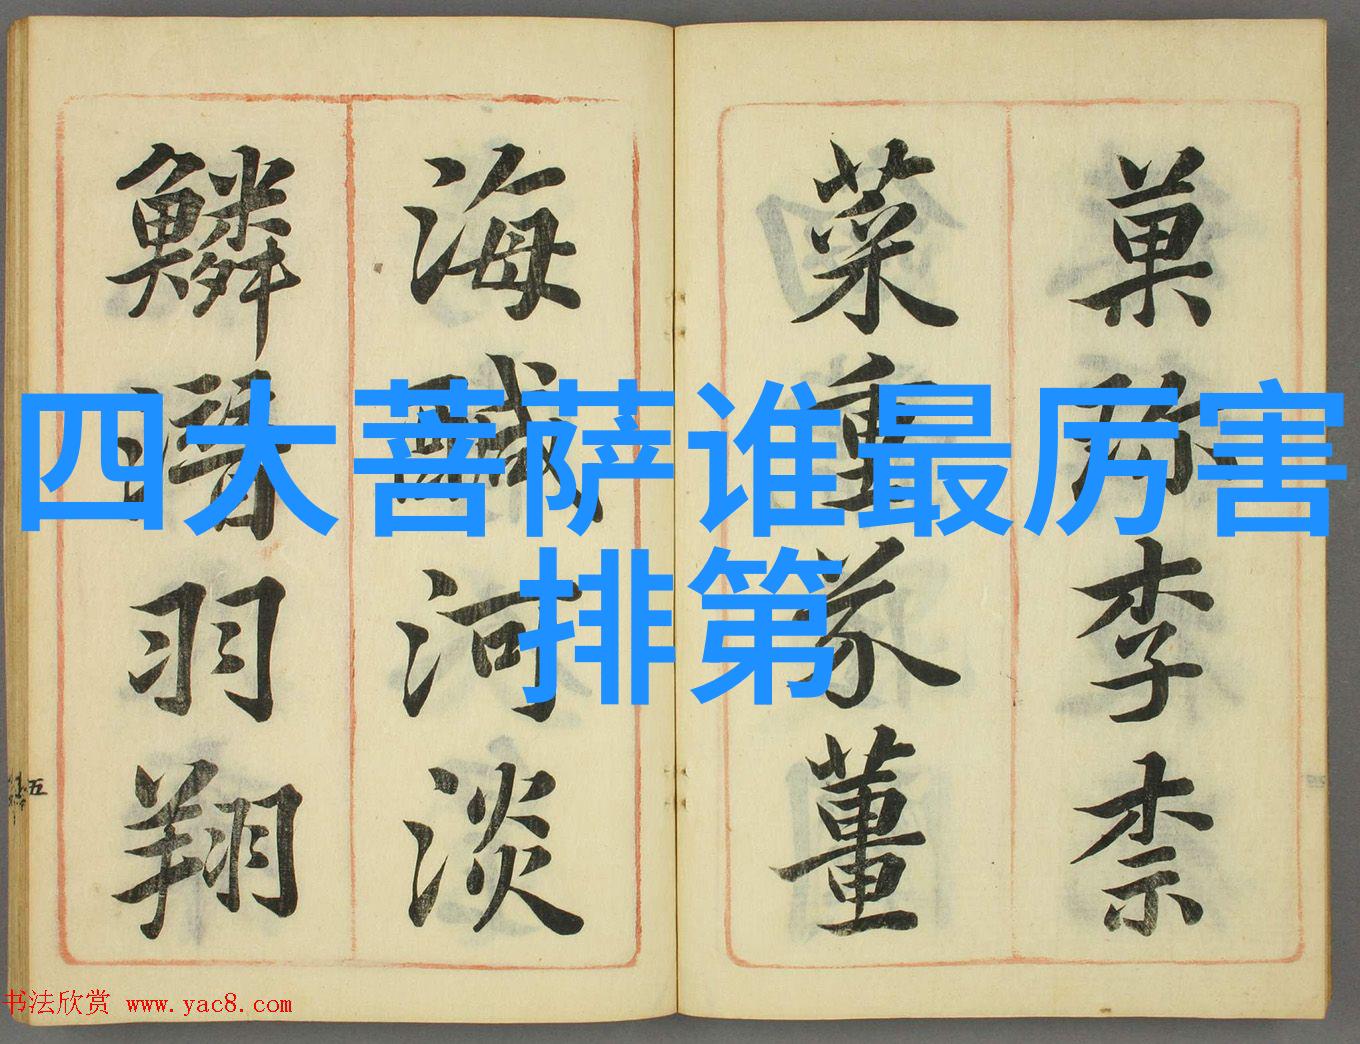 四大菩萨谁最厉害
排第
菓珎李柰
菜重芥薑
海醎河淡
鱗潛羽翔
五
书法欣赏 www.yac8.com